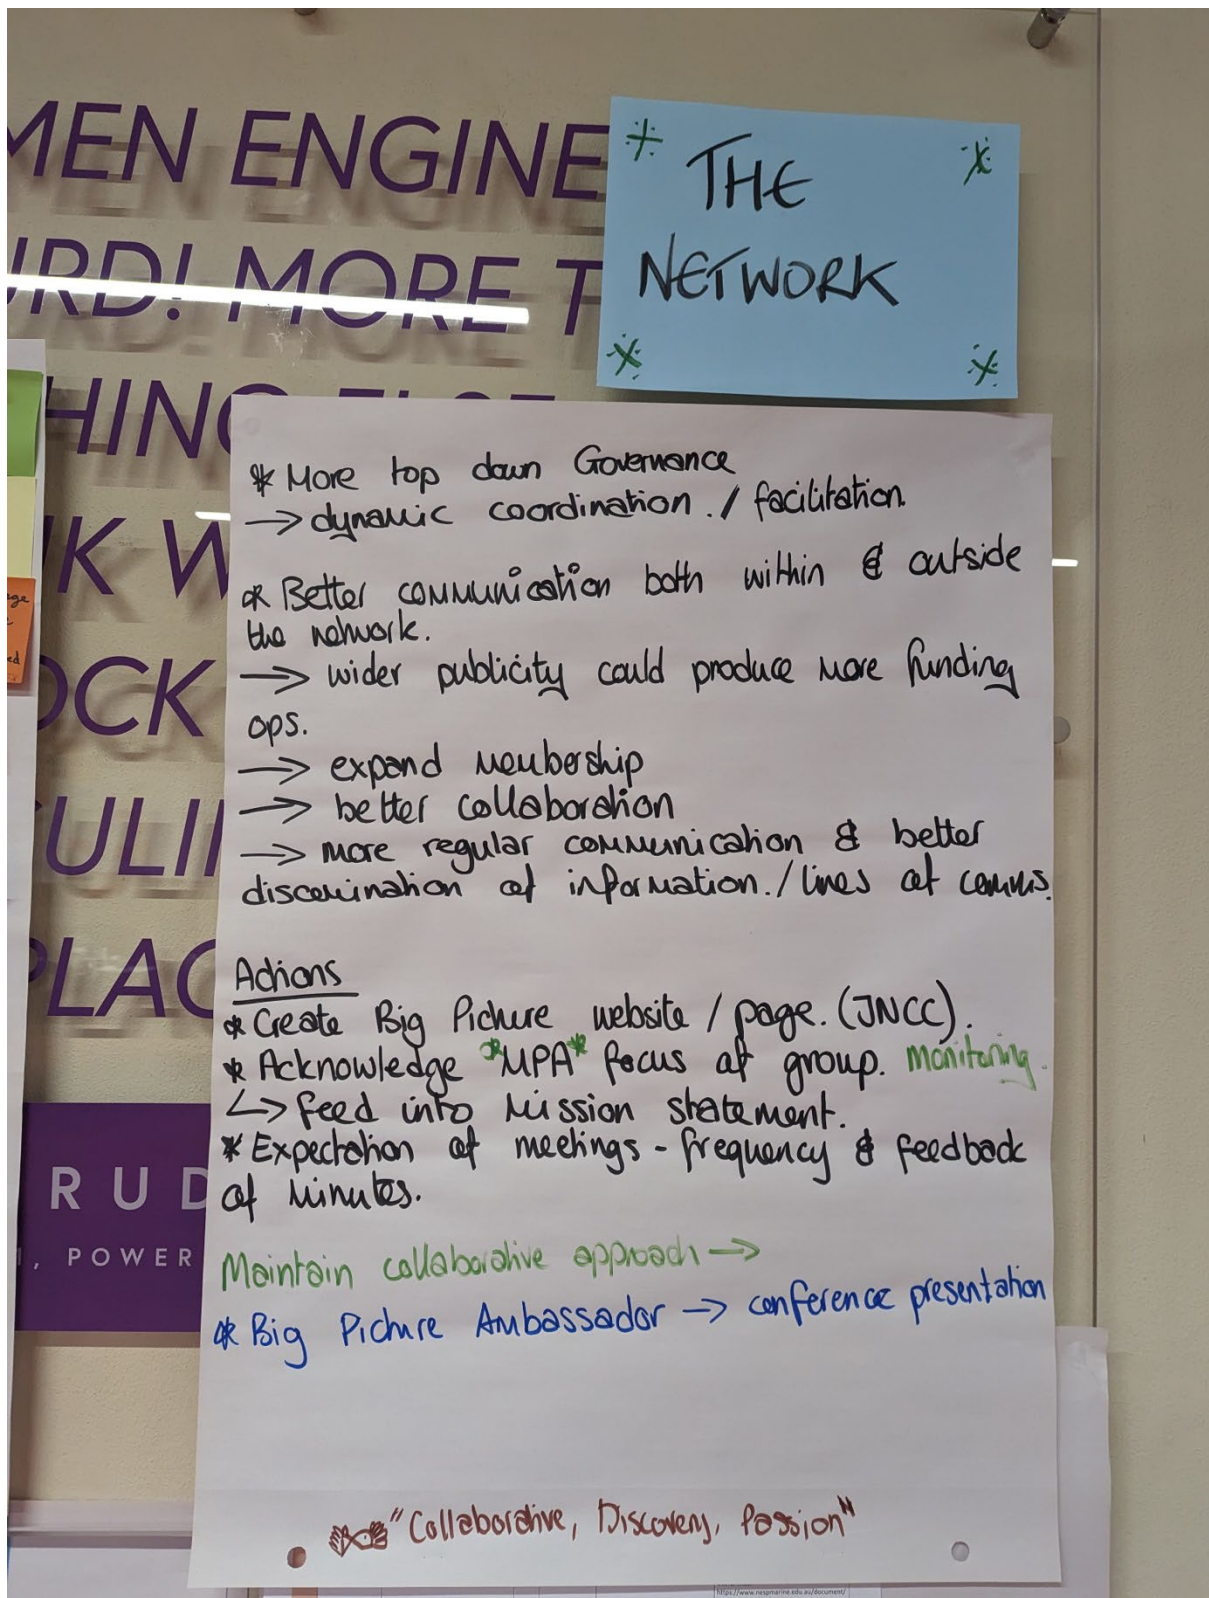 MEN ENGINE
URD! MORE T
HING ELSE
K W
OCK
ULI
PLAC
RUD
, POWER
THE
NETWORK
* More top down Governance
→ dynamic coordination. / facilitation.
* Better communication both within & outside
the network.
→ wider publicity could produce more funding
ops.
→ expand membership
→ better collaboration
→ more regular communication & better
discemination of information. / lines of comms.
Actions
* Create Big Picture website / page. (JNCC).
* Acknowledge *MPA* focus of group. monitoring.
↳ feed into mission statement.
* Expectation of meetings - frequency & feedback
of minutes.
Maintain collaborative approach →
* Big Picture Ambassador → conference presentation
"Collaborative, Discovery, Passion"
https://www.nespmarine.edu.au/document/